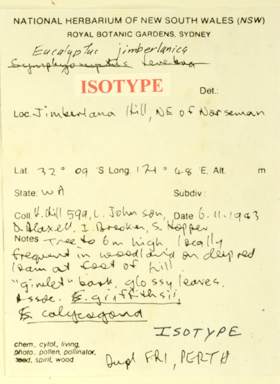 NATIONAL HERBARIUM OF NEW SOUTH WALES (NSW)
ROYAL BOTANIC GARDENS, SYDNEY
Eucalyptus jimberlanica
ISOTYPE Det.:
Loc. Jimberlana Hill, NE of Norseman
Lat. 32° 09'S Long. 121° 48'E, Alt. m
State: WA Subdiv:
Coll. K. Hill 599, L. Johnson, Date 6-11-1983
D. Blaxell, I. Brooker, S. Hopper
Notes Tree to 6m high locally
frequent in woodland on deep red
loam at foot of hill.
"gimlet" bark, glossy leaves.
Assoc. E. griffithsii,
E. calycogona
ISOTYPE
chem., cytol., living,
photo., pollen, pollinator,
seed, spirit, wood
Dupl FRI, PERTH